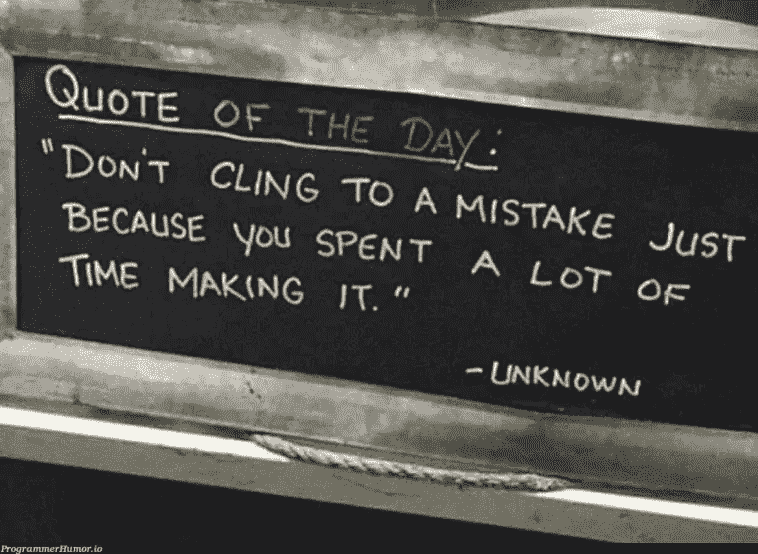 QUOTE OF THE DAY:
"DON'T CLING TO A MISTAKE JUST
BECAUSE YOU SPENT A LOT OF
TIME MAKING IT."
-UNKNOWN
ProgrammerHumor.io